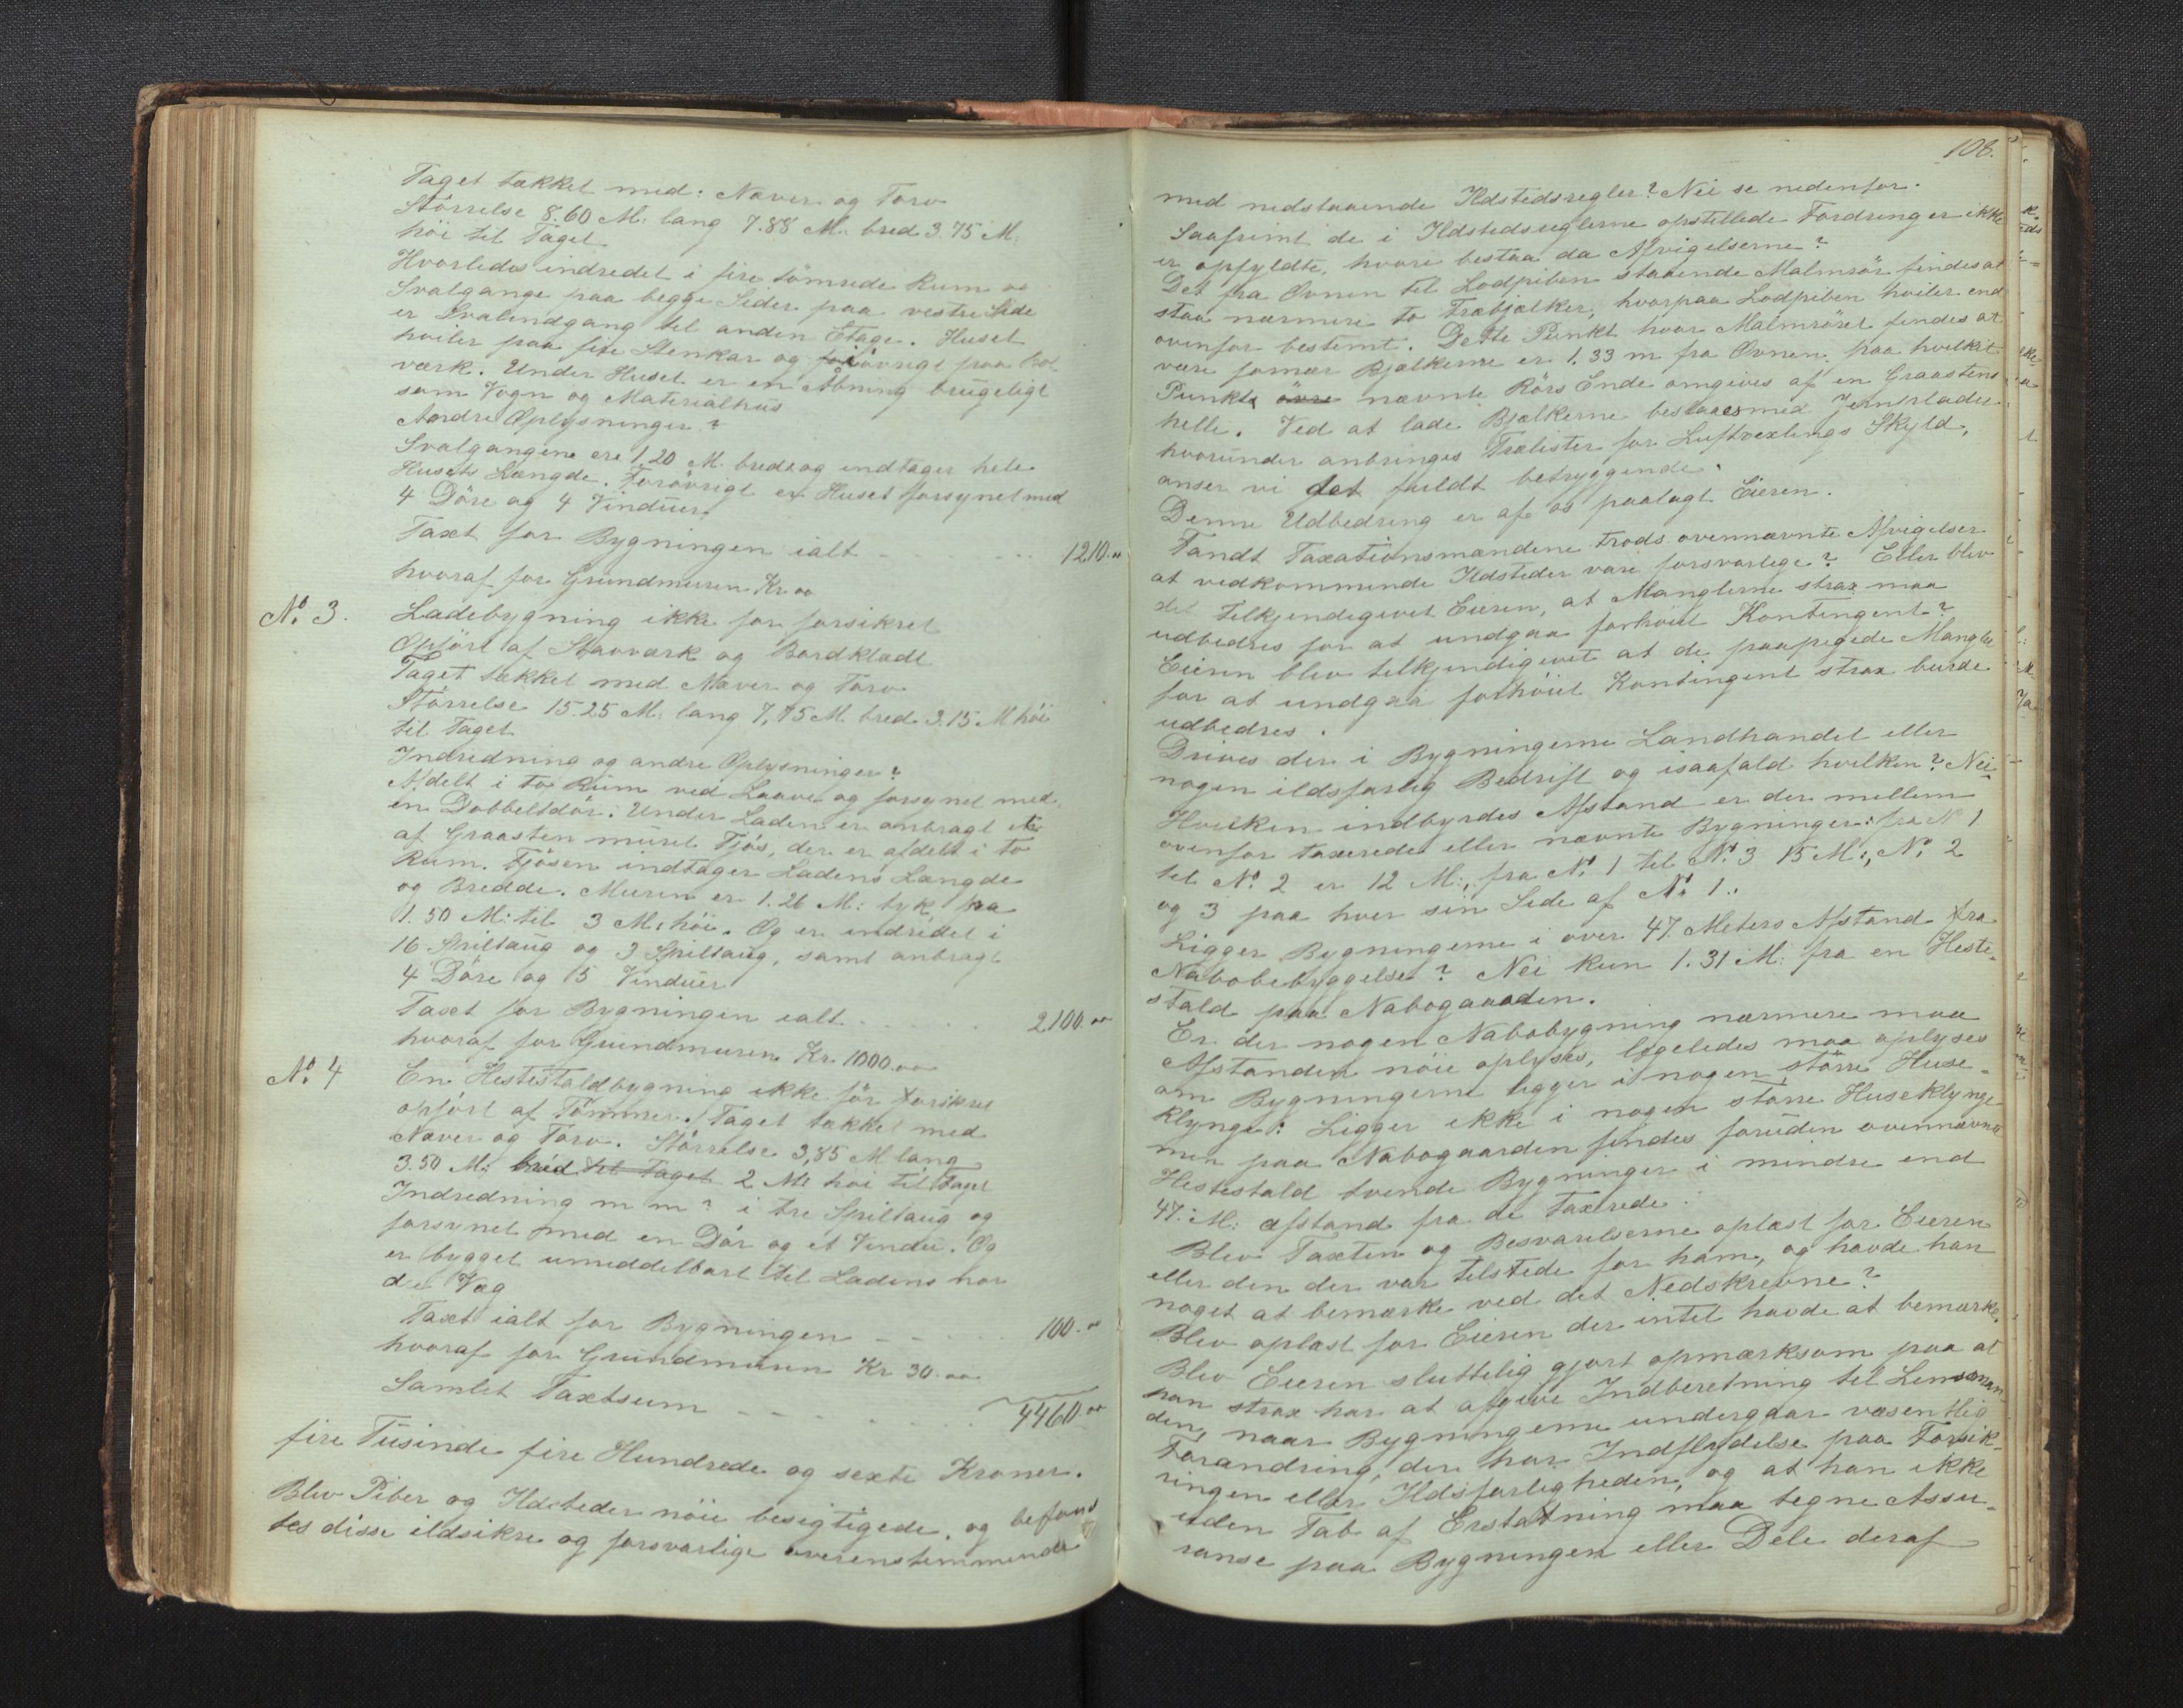 Taget tækket med: Næver og Torv
Störrelse 8.60 M: lang 7.88 M: bred 3.75 M:
höi til Taget
Hvorledes indredet i fire tömrede Rum og
Svalgange paa begge Sider paa vestre Side
er Svalindgang til anden Etage. Huset
hviler paa fire Stenkar og forövrigt paa
værk. Under Huset er en Åbning brugeligt
som Vogn og Materialhus
Andre Oplysninger?
Svalgangene ere 1.20 M. brede og indtager hele
Husets Længde. Forövrigt er Huset forsynet med
4 Döre og 4 Vinduer.
Taxt for Bygningen ialt - - - - 1210.00
hvoraf for Grundmuren Kr 00
No. 3. Ladebygning ikke för forsikret
Opfört af Stavværk og Bordklædt
Taget tækket med Næver og Torv
Störrelse 15.25 M: lang 7,75 M. bred 3.15 M höi
til Taget
Indredning og andre Oplysninger?
Afdelt i to Rum ved Laave og forsynet med
en Dobbeltdör. Under Laden er anbragt et
af Graasten muret Fjös, der er afdelt i to
Rum. Fjösen indtager Ladens Længde
og Bredde. Muren er 1.26 M: tyk fra
1.50 M: til 3 M: höi. Og er indredet i
16 Spiltaug og 3 Spiltaug, samt anbragt
4 Döre og 5 Vinduer
Taxt for Bygningen ialt - - - - 2100.00
hvoraf for Grundmuren Kr. 1000.00
No. 4 En Hestestaldbygning ikke för forsikret
opfört af Tömmer. Taget tækket med
Næver og Torv. Störrelse 3,85 M lang
3.50 M: bred til Taget 2 M höi til Taget
Indredning m m? i tre Spiltaug og
forsynet med en Dör og et Vindu. Og
er bygget umiddelbart til Ladens nor
de Væg
Taxt ialt for Bygningen - - - - 100.00
hvoraf for Grundmuren Kr 30.00
Samlet Taxtsum - - - - 4460.00
fire Tusinde fire Hundrede og sexti Kroner.
Blev Piber og Ildsteder nöie besigtigede, og befand
tes disse ildsikre og forsvarlige overenstemmende
108.
med nedstaaende Ildstedsregler? Nei se nedenfor.
Saafremt de i Ildstedsreglerne opstillede Fordringer ikke
er opfyldte, hvori bestaa da Afvigelserne?
Det fra Ovnen til Lodpiben staaende Malmrör findes at
staa nærmere to Træbjælker, hvorpaa Lodpiben hviler end
ovenfor bestemt. Dette Punkt hvor Malmröret findes at
være for nær Bjælkerne er 1.33 m fra Ovnen, paa hvilket
Punkt övre nævnte Rörs Ende omgives af en Graastens
helle. Ved at lade Bjælkerne beslaaes med Jernplader
hvorunder anbringes Trælister for Luftvexlings Skyld,
anser vi det fuldt betryggende.
Denne Udbedring er af os paalagt Eieren.
Fandt Taxationsmændene trods ovennævnte Afvigelser
at vedkommende Ildsteder vare forsvarlige? Eller blev
det tilkjendegivet Eieren, at Manglerne strax maa
udbedres for at undgaa forhöiet Kontingent?
Eieren blev tilkjendigivet at de paapegede Mangler
for at undgaa forhöiet Kontingent strax burde
udbedres.
Drives der i Bygningerne Landhandel eller
nogen ildsfarlig Bedrift og isaafald hvilken? Nei
Hvilken indbyrdes Afstand er der mellem
ovenfor taxerede eller nævnte Bygninger: fra No 1
til No. 2 er 12 M:, fra No. 1 til No. 3 15 M:, No. 2
og 3 paa hver sin Side af No. 1.
Ligger Bygningerne i over 47. Meters Afstand fra
Nabobebyggelse? Nei kun 1.31 M: fra en Heste-
stald paa Nabogaarden.
Er der nogen Nabobygning nærmere maa
Afstanden nöie oplyses, ligeledes maa oplyses
om Bygningerne ligger i nogen större Huse-
klynge: Ligger ikke i nogen större Huseklynge
men paa Nabogaarden findes foruden ovennævnte
Hestestald tvende Bygninger i mindre end
47. M: afstand fra de taxerede.
Blev Taxten og Besvarelserne oplæst for Eieren
eller den der var tilstede for ham, og havde han
noget at bemærke ved det Nedskrevne?
Blev oplæst for Eieren der intet havde at bemærke.
Blev Eieren sluttelig gjort opmærksom paa at
han strax har at afgive Indberetning til Lensman
den, naar Bygningerne undergaar væsentlig
Forandring, der har Indflydelse paa Forsik-
ringen eller Ildsfarligheden, og at han ikke
uden Tab af Erstatning maa tegne Assu-
ranse paa Bygningen eller Dele deraf